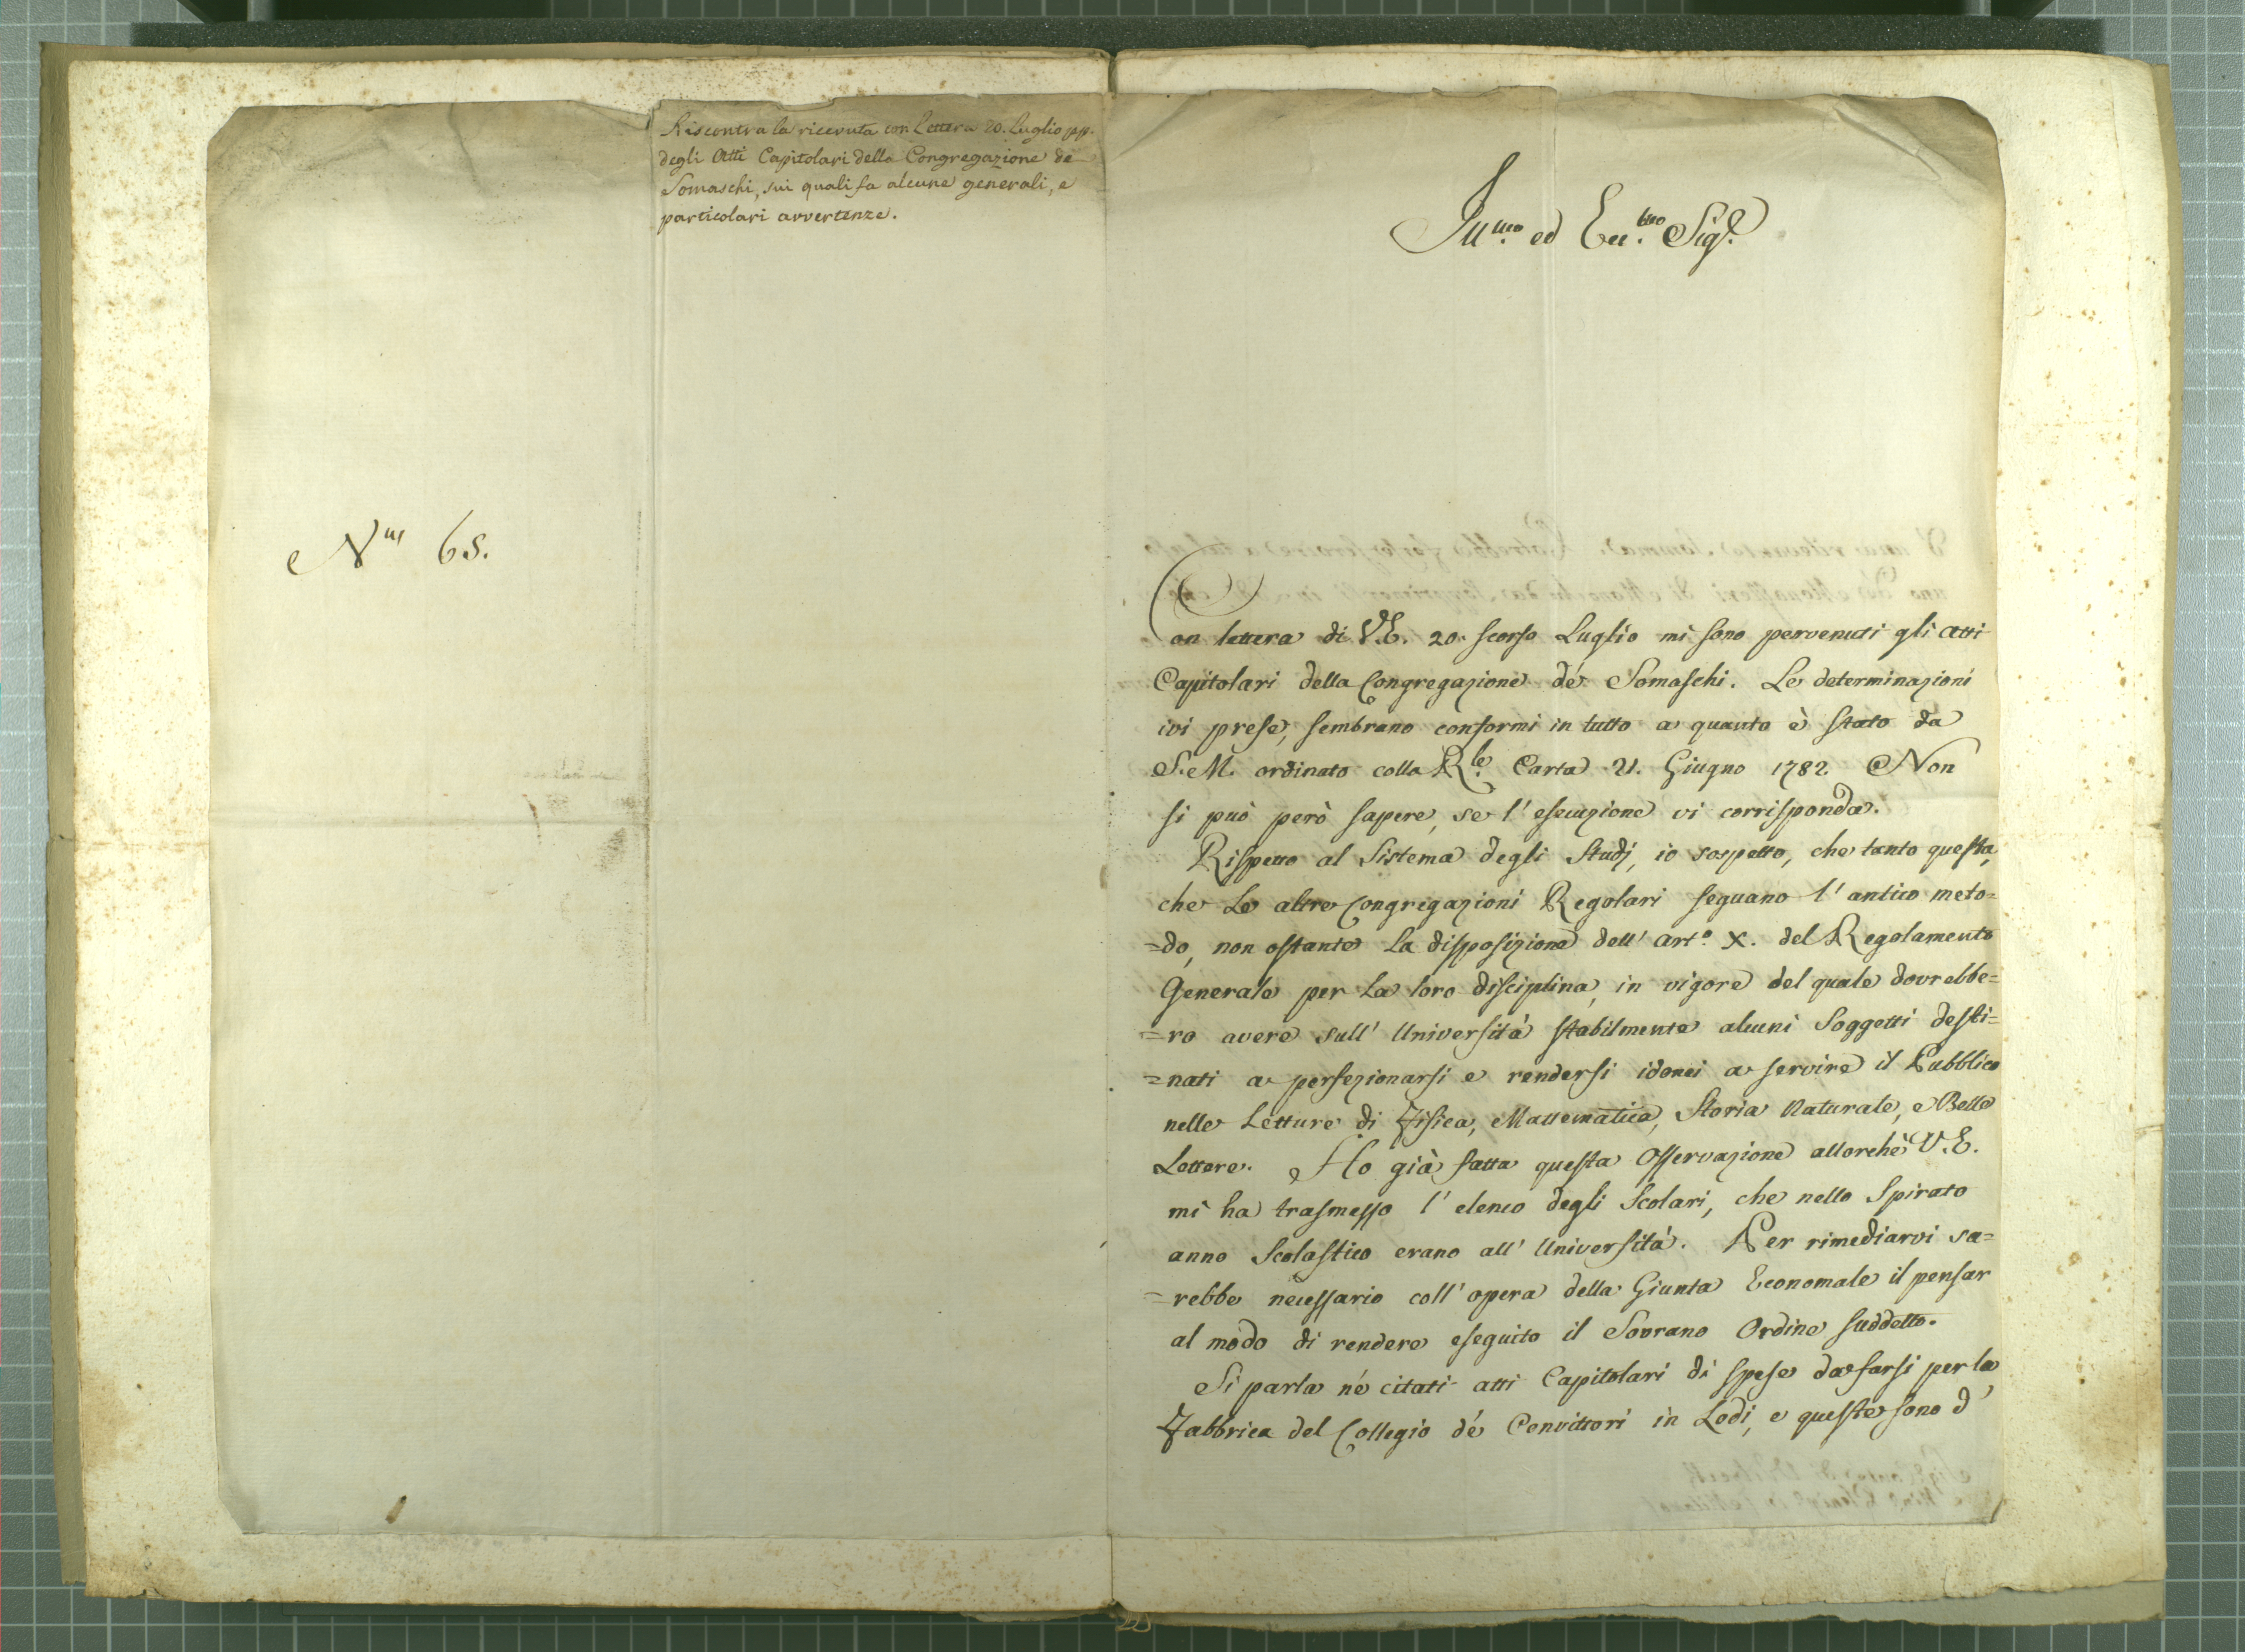 Riscontra la ricevuta con Lettera 20. Luglio pp.
degli Atti Capitolari della Congregazione de
Somaschi, sui quali fa alcune generali, e
particolari avvertenze.
Nus 65.
Illmo ed Ecc.mo Sigr.
Con lettera di V.E. 20. scorso Luglio mi sono pervenuti gli atti
Capitolari della Congregazione dé Somaschi. Le determinazioni
ivi prese, sembrano conformi in tutto a quanto è stato da
S.M. ordinato colla Rle. Carta 21. Giugno 1782 Non
si può però sapere, se l'esecuzione vi corrisponda.
Rispetto al Sistema degli Studj, io sospetto, che tanto questa,
che Le altre Congregazioni Regolari seguano l'antico meto=
=do, non ostante La disposizione dell' arto. X. del Regolamento
Generale per La loro disciplina, in vigore del quale dovrebbe=
=ro avere sull' Università stabilmente alcuni Soggetti desti=
=nati a perfezionarsi e rendersi idonei a servire il Pubblico
nelle Letture di Fisica, Mattematica, Storia Naturale, e Belle
Lettere. Ho già fatta questa Osservazione allorchè V.E.
mi ha trasmesso l'elenco degli Scolari, che nello Spirato
anno Scolastico erano all' Università. Per rimediarvi sa=
=rebbe necessario coll' opera della Giunta Economale il pensar
al modo di rendere eseguito il Sovrano Ordine suddetto.
Si parla né citati atti Capitolari di spese da farsi per la
Fabbrica del Collegio dé Convittori in Lodi, e queste sono d'